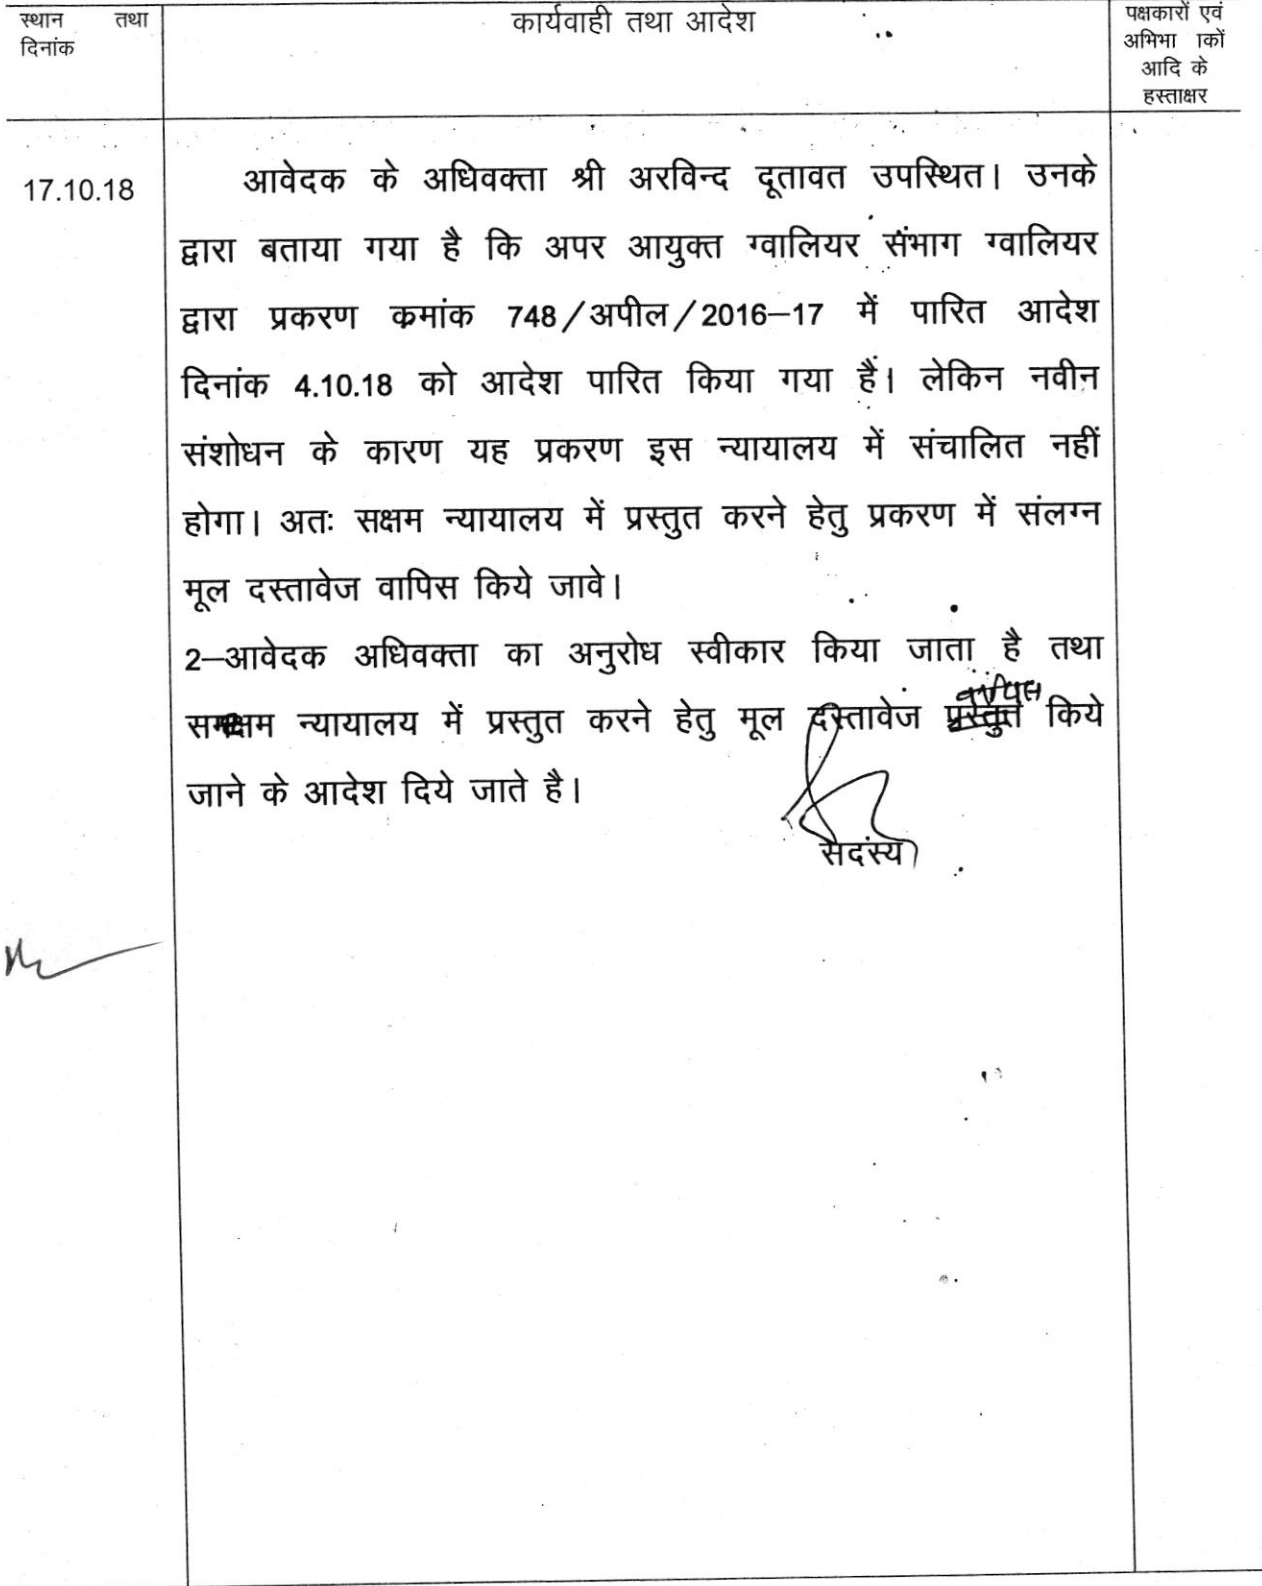 स्थान तथा
दिनांक
कार्यवाही तथा आदेश
पक्षकारों एवं
अभिभा ाकों
आदि के
हस्ताक्षर
17.10.18
आवेदक के अधिवक्ता श्री अरविन्द दूतावत उपस्थित। उनके
द्वारा बताया गया है कि अपर आयुक्त ग्वालियर संभाग ग्वालियर
द्वारा प्रकरण क्रमांक 748/अपील/2016–17 में पारित आदेश
दिनांक 4.10.18 को आदेश पारित किया गया हैं। लेकिन नवीन
संशोधन के कारण यह प्रकरण इस न्यायालय में संचालित नहीं
होगा। अतः सक्षम न्यायालय में प्रस्तुत करने हेतु प्रकरण में संलग्न
मूल दस्तावेज वापिस किये जावे।
2–आवेदक अधिवक्ता का अनुरोध स्वीकार किया जाता है तथा
वापिस
न्यायालय में प्रस्तुत करने हेतु मूल दस्तावेज प्रस्तुत किये
जाने के आदेश दिये जाते है।
सदस्य